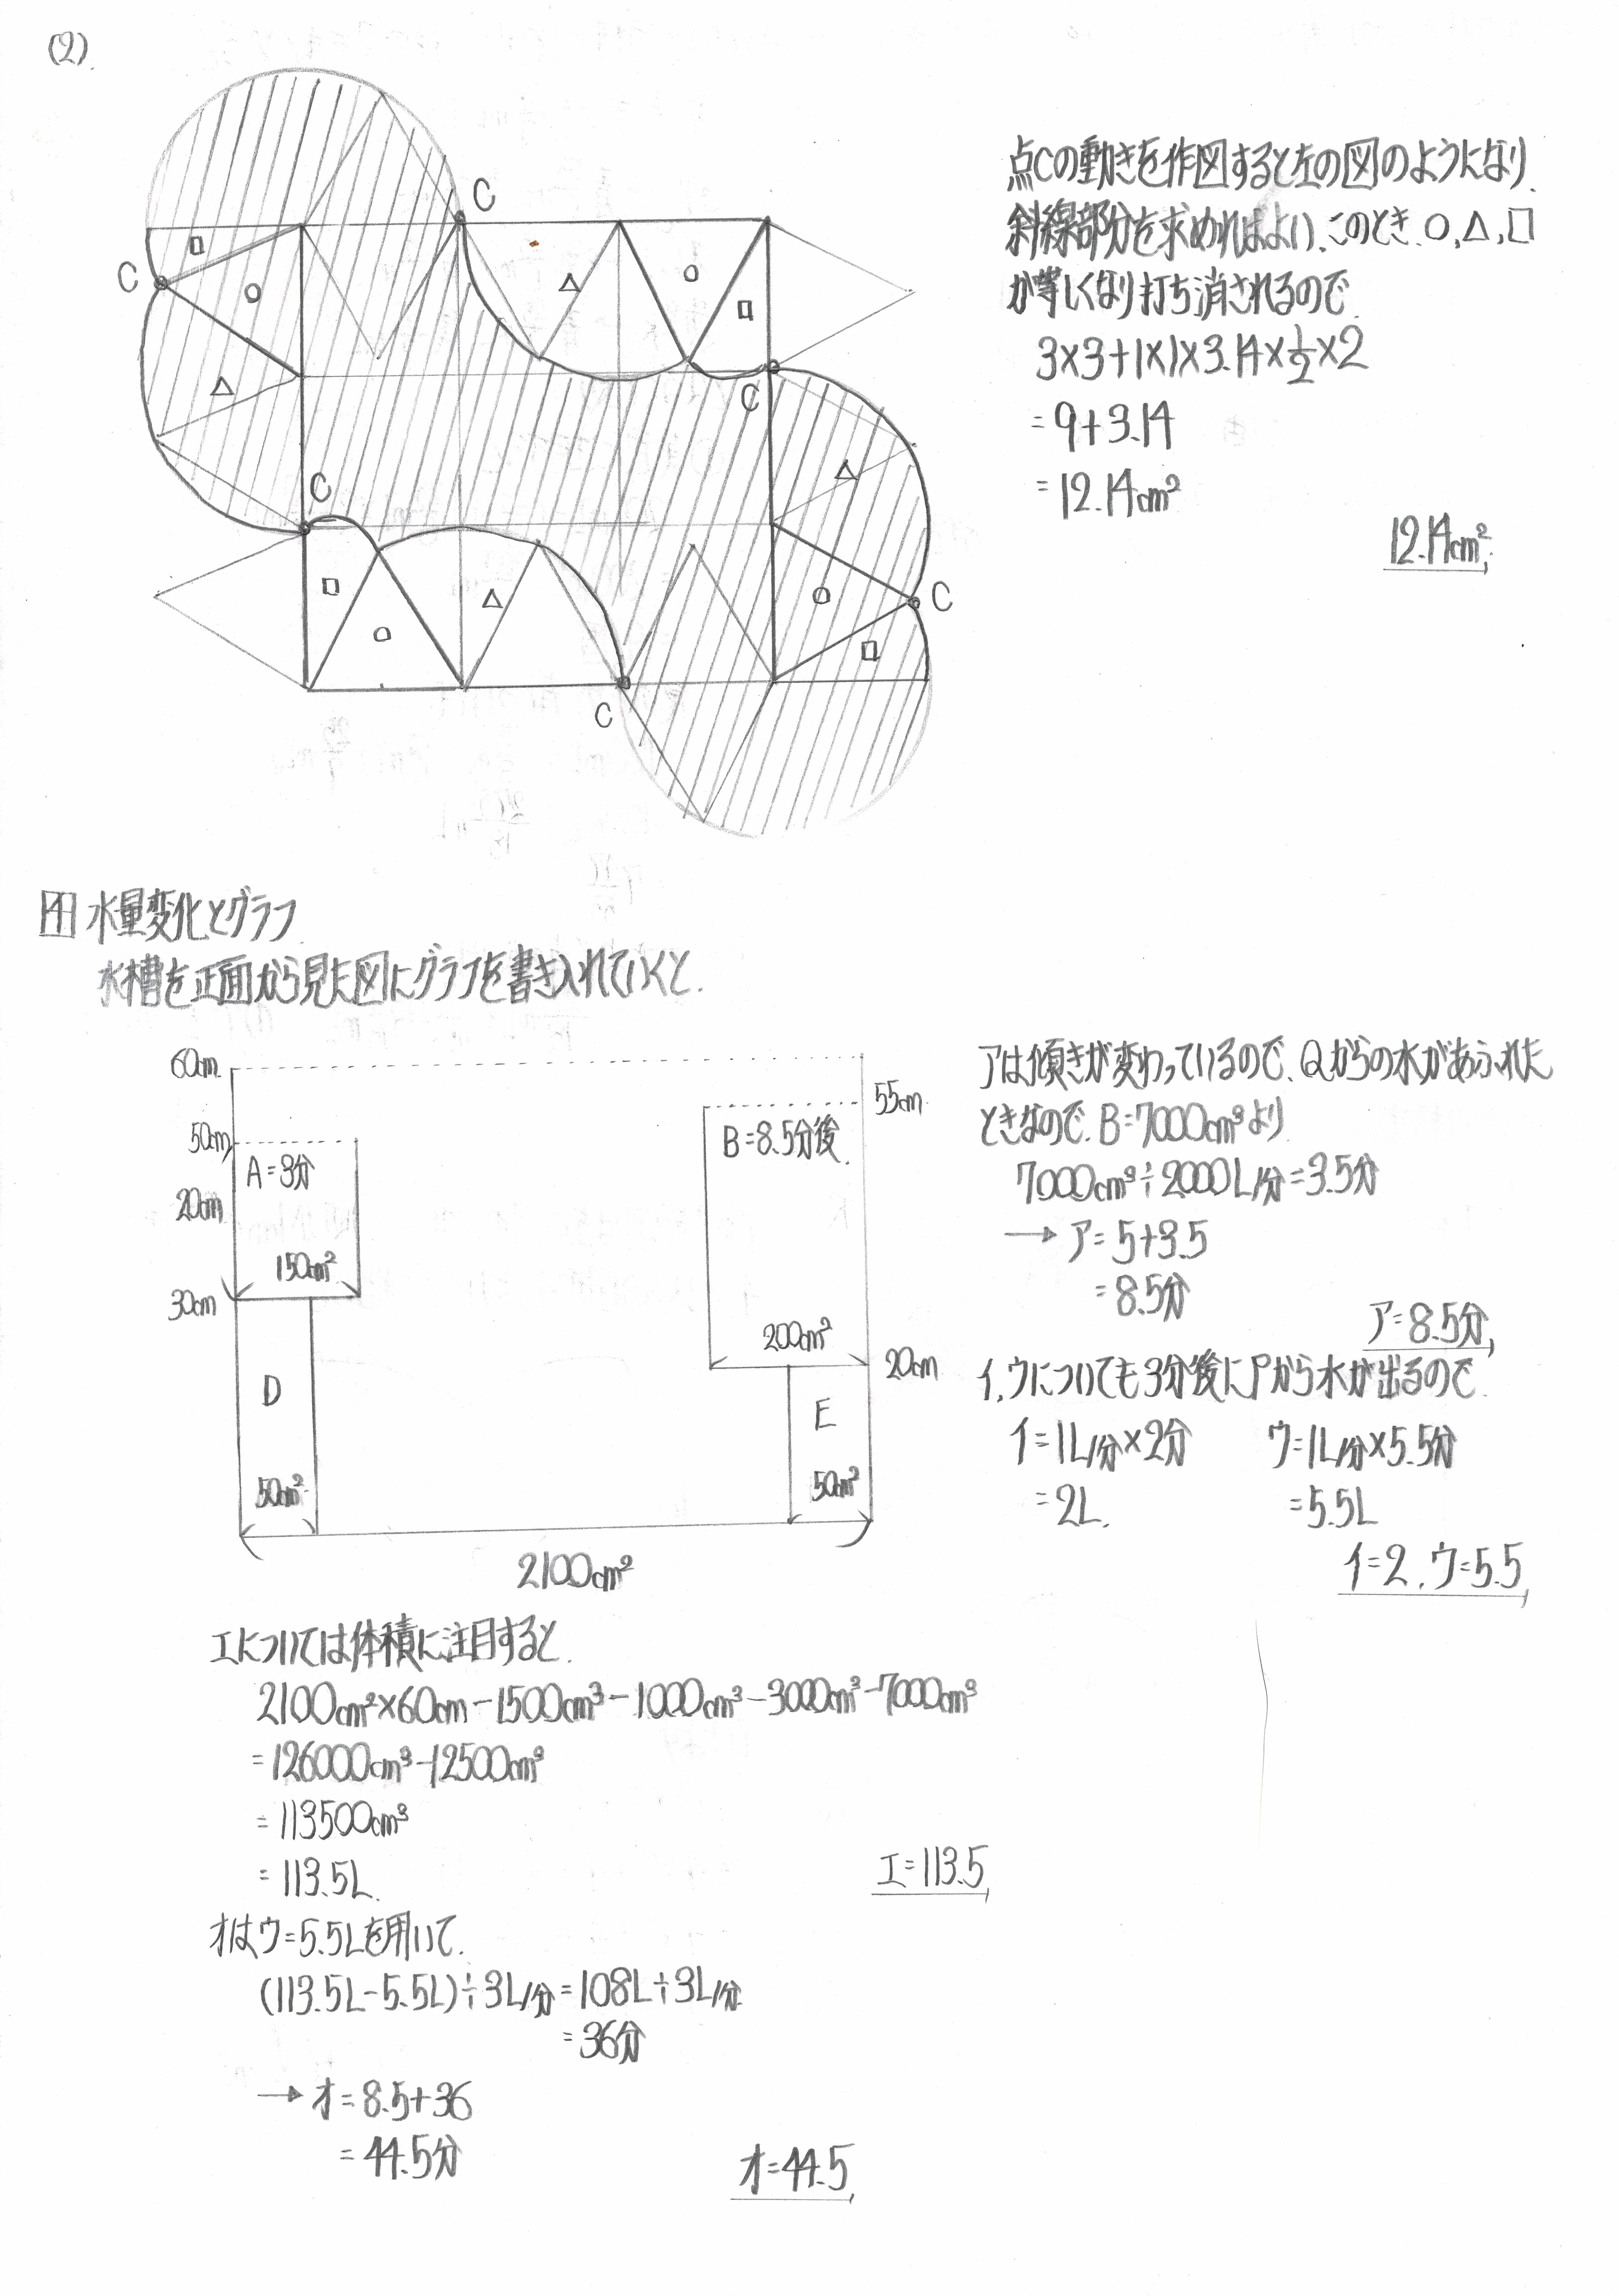 (2)
C
C
C
C
C
C
□
○
△
△
○
□
□
○
△
△
○
□
点Cの動きを作図すると左の図のようになり、
斜線部分を求めればよい、このとき、○、△、□
が等しくなり打ち消されるので
3×3+1×1×3.14×1/2×2
=9+3.14
=12.14cm²
12.14cm²
4 水量変化とグラフ
水槽を正面から見た図にグラフを書き入れていくと、
60cm
50cm
20cm
30cm
A=3分
150cm²
D
50cm²
55cm
B=8.5分後
200cm²
20cm
E
50cm²
2100cm²
アは傾きが変わっているので、Qからの水があふれた
ときなので、B=7000cm³より
7000cm³÷2000L/分=3.5分
→ ア=5+3.5
=8.5分
ア=8.5分
イ、ウについても3分後にPから水が出るので
イ=1L/分×2分 ウ=1L/分×5.5分
=2L =5.5L
イ=2、ウ=5.5
エについては体積に注目すると、
2100cm²×60cm-1500cm³-1000cm³-3000cm³-7000cm³
=126000cm³-12500cm³
=113500cm³
=113.5L
エ=113.5
オはウ=5.5Lを用いて、
(113.5L-5.5L)÷3L/分=108L÷3L/分
=36分
→ オ=8.5+36
=44.5分
オ=44.5